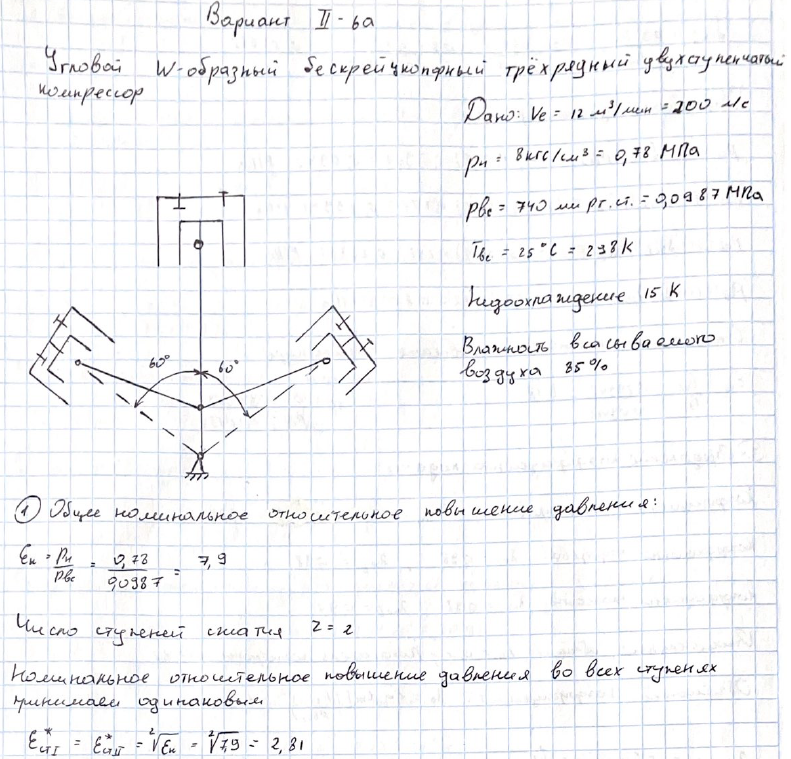 Вариант II-6а
Угловой W-образный бескрейцкопфный трёхрядный двухступенчатый
компрессор
Дано: Ve = 12 м³/мин = 200 л/с
pн = 8 кгс/см³ = 0,78 МПа
pвс = 740 мм рт. ст. = 0,0987 МПа
Tвс = 25°C = 298 К
Недоохлаждение 15 К
Влажность всасываемого
воздуха 85%
60° 60°
① Общее номинальное относительное повышение давления:
Ɛк = pн/pвс = 0,78/0,0987 = 7,9
Число ступеней сжатия z = 2
Номинальное относительное повышение давления во всех ступенях
принимаем одинаковым
Ɛ*стI = Ɛ*стII = ²√Ɛк = ²√7,9 = 2,81